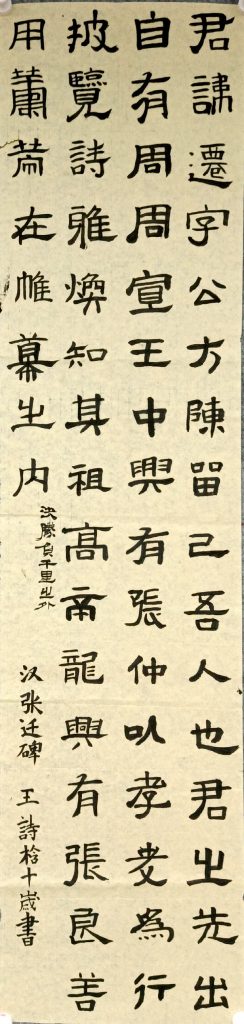 君諱遷字公方陳留己吾人也君之先出
自有周周宣王中興有張仲以孝友為行
披覽詩雅煥知其祖高帝龍興有張良善
用籌策在帷幕之内
決勝負千里之外
汉张迁碑 王詩十歲書